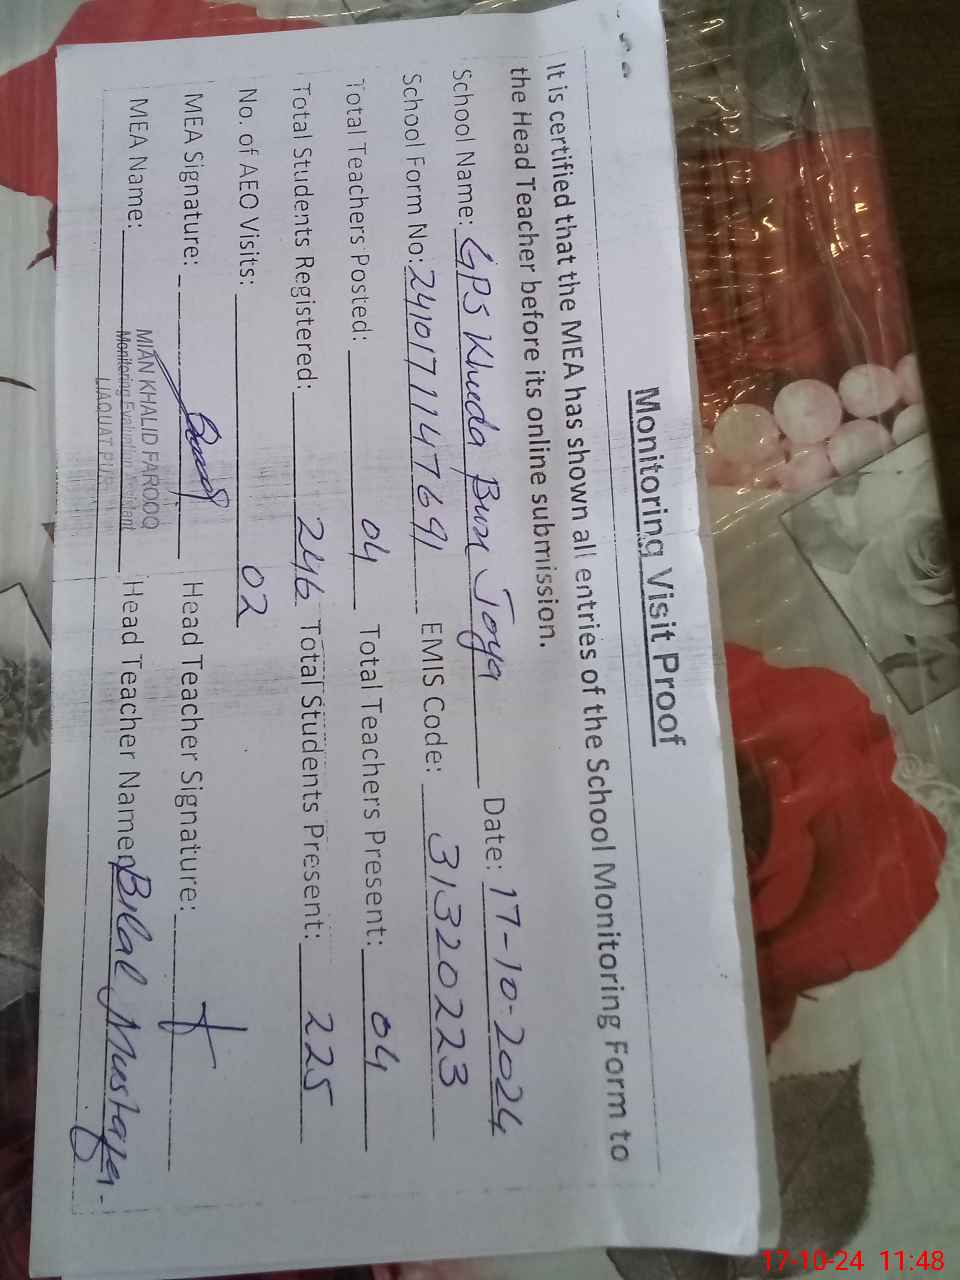 Monitoring Visit Proof
It is certified that the MEA has shown all entries of the School Monitoring Form to
the Head Teacher before its online submission.
School Name: GPS Khuda Bux Joya Date: 17-10-2024
School Form No: 2410171147691 EMIS Code: 31320223
Total Teachers Posted: 04 Total Teachers Present: 04
Total Students Registered: 246 Total Students Present: 225
No. of AEO Visits: 02
MEA Signature: Head Teacher Signature:
MIAN KHALID FAROOQ
Monitoring Evaluation Assistant
LIAQUAT PUR
MEA Name: Head Teacher Name: Bilal Mustafa.
17-10-24 11:48